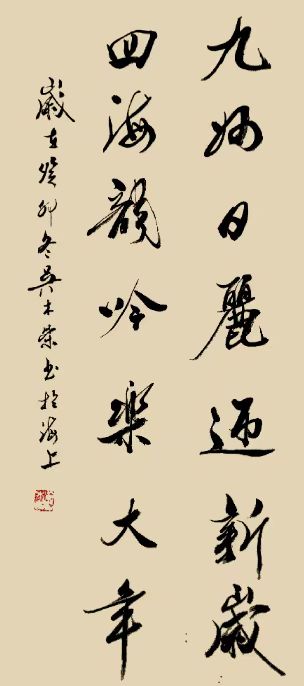 九州日麗迎新歲
四海韻吟樂大年
歲在癸卯冬吳木榮书於海上